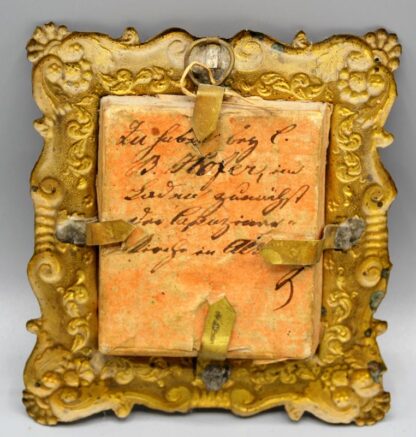 Zu haben bey C.
B. Hofer, im
Laden zunächst
der Kapuziner-
kirche in